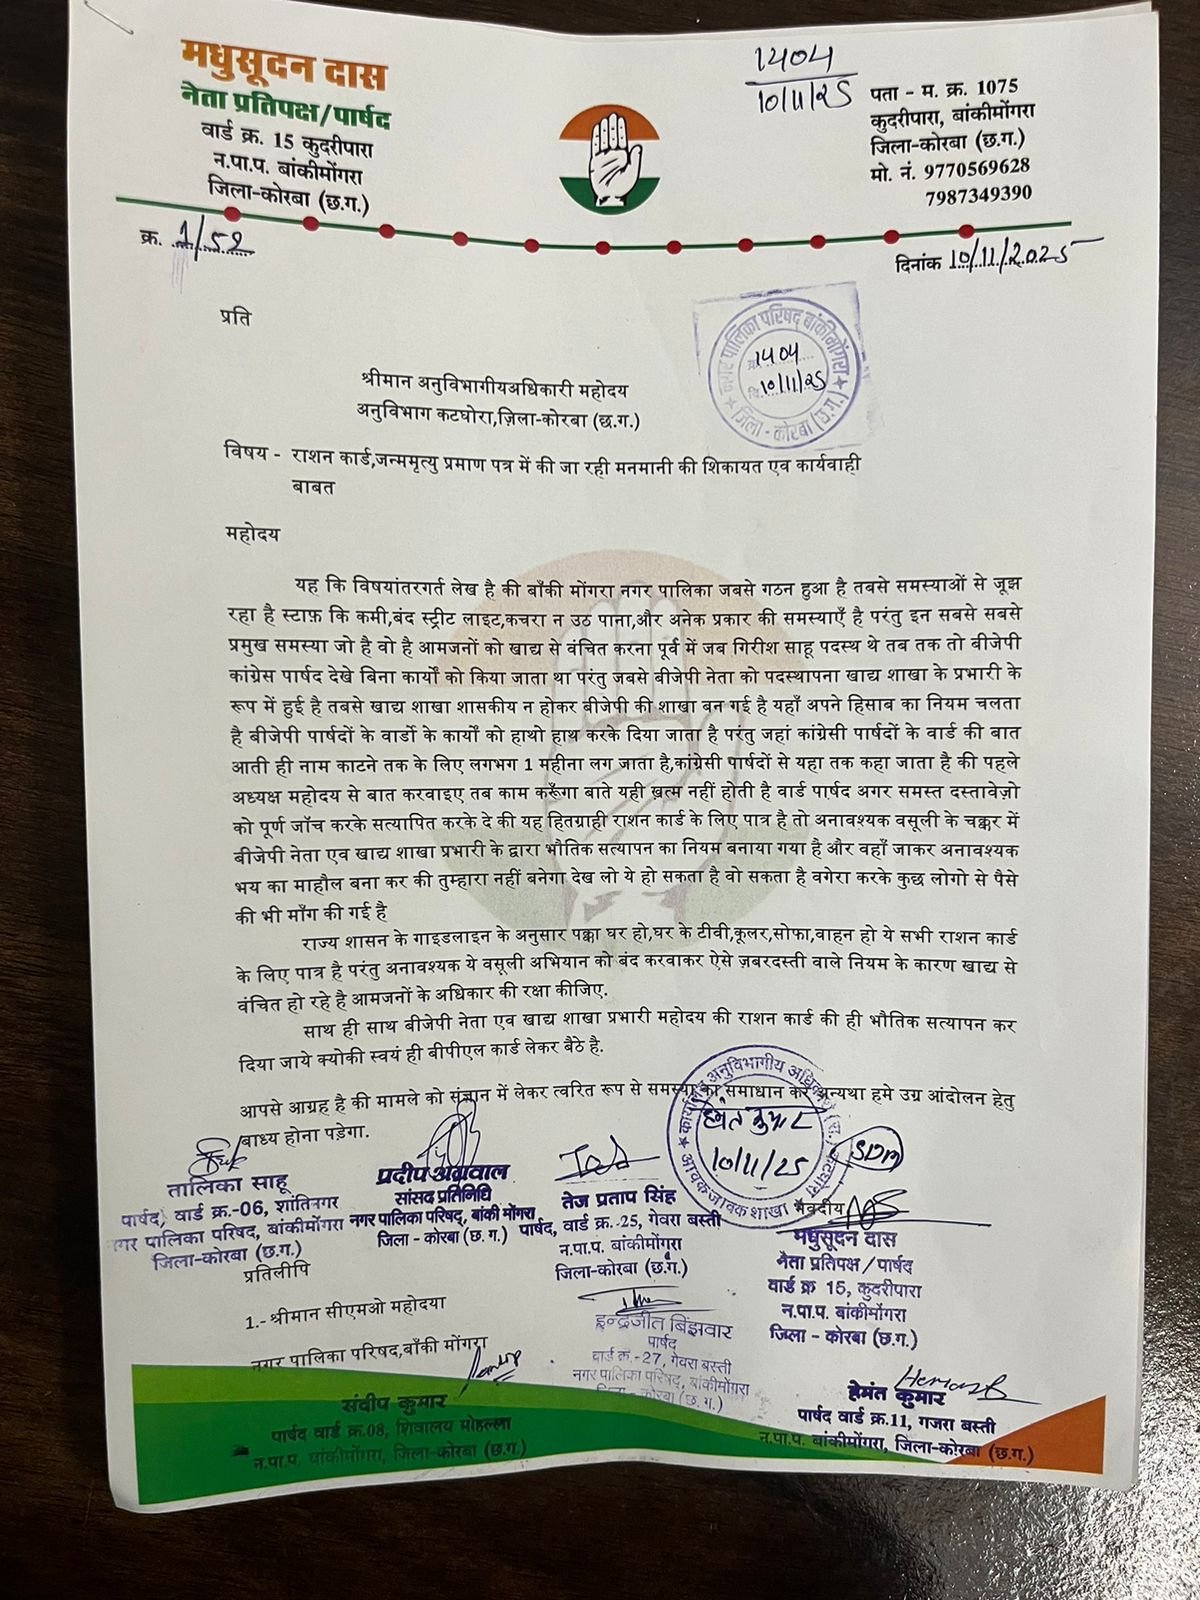 मधुसूदन दास
नेता प्रतिपक्ष/पार्षद
वार्ड क्र. 15 कुदरीपारा
न.पा.प. बांकीमोंगरा
जिला-कोरबा (छ.ग.)
1404
10/11/25
पता - म. क्र. 1075
कुदरीपारा, बांकीमोंगरा
जिला-कोरबा (छ.ग.)
मो. नं. 9770569628
7987349390
क्र. 1/52
दिनांक 10/11/2025
नगर पालिका परिषद् बांकीमोंगरा
1404
10/11/25
जिला - कोरबा (छ.ग.)
प्रति
श्रीमान अनुविभागीयअधिकारी महोदय
अनुविभाग कटघोरा,ज़िला-कोरबा (छ.ग.)
विषय - राशन कार्ड,जन्ममृत्यु प्रमाण पत्र में की जा रही मनमानी की शिकायत एव कार्यवाही
बाबत
महोदय
यह कि विषयांतरगर्त लेख है की बाँकी मोंगरा नगर पालिका जबसे गठन हुआ है तबसे समस्याओं से जूझ
रहा है स्टाफ़ कि कमी,बंद स्ट्रीट लाइट,कचरा न उठ पाना,और अनेक प्रकार की समस्याएँ है परंतु इन सबसे सबसे
प्रमुख समस्या जो है वो है आमजनों को खाद्य से वंचित करना पूर्व में जब गिरीश साहू पदस्थ थे तब तक तो बीजेपी
कांग्रेस पार्षद देखे बिना कार्यों को किया जाता था परंतु जबसे बीजेपी नेता को पदस्थापना खाद्य शाखा के प्रभारी के
रूप में हुई है तबसे खाद्य शाखा शासकीय न होकर बीजेपी की शाखा बन गई है यहाँ अपने हिसाब का नियम चलता
है बीजेपी पार्षदों के वार्डो के कार्यों को हाथो हाथ करके दिया जाता है परंतु जहां कांग्रेसी पार्षदों के वार्ड की बात
आती ही नाम काटने तक के लिए लगभग 1 महीना लग जाता है,कांग्रेसी पार्षदों से यहा तक कहा जाता है की पहले
अध्यक्ष महोदय से बात करवाइए तब काम करूँगा बाते यही ख़त्म नहीं होती है वार्ड पार्षद अगर समस्त दस्तावेज़ो
को पूर्ण जाँच करके सत्यापित करके दे की यह हितग्राही राशन कार्ड के लिए पात्र है तो अनावश्यक वसूली के चक्कर में
बीजेपी नेता एव खाद्य शाखा प्रभारी के द्वारा भौतिक सत्यापन का नियम बनाया गया है और वहाँ जाकर अनावश्यक
भय का माहौल बना कर की तुम्हारा नहीं बनेगा देख लो ये हो सकता है वो सकता है वगेरा करके कुछ लोगो से पैसे
की भी माँग की गई है
राज्य शासन के गाइडलाइन के अनुसार पक्का घर हो,घर के टीवी,कूलर,सोफा,वाहन हो ये सभी राशन कार्ड
के लिए पात्र है परंतु अनावश्यक ये वसूली अभियान को बंद करवाकर ऐसे ज़बरदस्ती वाले नियम के कारण खाद्य से
वंचित हो रहे है आमजनों के अधिकार की रक्षा कीजिए.
साथ ही साथ बीजेपी नेता एव खाद्य शाखा प्रभारी महोदय की राशन कार्ड की ही भौतिक सत्यापन कर
दिया जाये क्योकी स्वयं ही बीपीएल कार्ड लेकर बैठे है.
आपसे आग्रह है की मामले को संज्ञान में लेकर त्वरित रूप से समस्या का समाधान करें अन्यथा हमे उग्र आंदोलन हेतु
बाध्य होना पड़ेगा.
कार्यालय अनुविभागीय अधिकारी (रा.) कटघोरा
10/11/25
आवक जावक शाखा
SDM
भवदीय
तालिका साहू
पार्षद, वार्ड क्र.-06, शांतिनगर
नगर पालिका परिषद, बांकीमोंगरा
जिला-कोरबा (छ.ग.)
प्रदीप अग्रवाल
सांसद प्रतिनिधि
नगर पालिका परिषद्, बांकी मोंगरा
जिला - कोरबा (छ. ग.)
तेज प्रताप सिंह
पार्षद, वार्ड क्र.-25, गेवरा बस्ती
न.पा.प. बांकीमोंगरा
जिला-कोरबा (छ.ग.)
मधुसूदन दास
नेता प्रतिपक्ष/पार्षद
वार्ड क्र 15, कुदरीपारा
न.पा.प. बांकीमोंगरा
जिला - कोरबा (छ.ग.)
प्रतिलीपि
1.- श्रीमान सीएमओ महोदया
नगर पालिका परिषद,बाँकी मोंगरा
इन्द्रजीत बिंझवार
पार्षद
वार्ड क्र.-27, गेवरा बस्ती
नगर पालिका परिषद्, बांकीमोंगरा
जिला - कोरबा (छ. ग.)
संदीप कुमार
पार्षद वार्ड क्र.08, शिवालय मोहल्ला
न.पा.प. बांकीमोंगरा, जिला-कोरबा (छ.ग.)
हेमंत कुमार
पार्षद वार्ड क्र.11, गजरा बस्ती
न.पा.प. बांकीमोंगरा, जिला-कोरबा (छ.ग.)